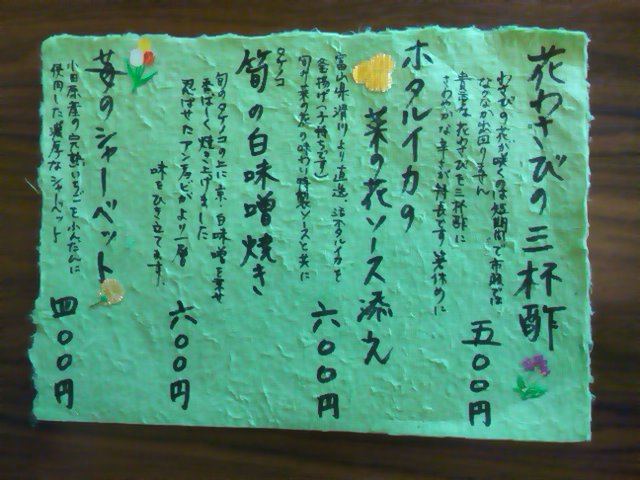 花わさびの三杯酢
わさびの花が咲くのは短期間で市場では
なかなか出回りません
貴重な花わさびを三杯酢に
さわやかな辛みが特長です 箸休めに
五〇〇円
ホタルイカの
菜の花ソース添え
富山県滑川より直送 活ホタルイカを
釜揚げ(子持ちです)
旬の菜の花の味わい特製ソースと共に
六〇〇円
タケノコ
筍の白味噌焼き
旬のタケノコの上に京・白味噌を乗せ
香ばしく焼き上げました
忍ばせたアンチョビがより一層
味をひき立てます。
六〇〇円
苺のシャーベット
小田原産の完熟いちごをふんだんに
使用した濃厚なシャーベット
四〇〇円